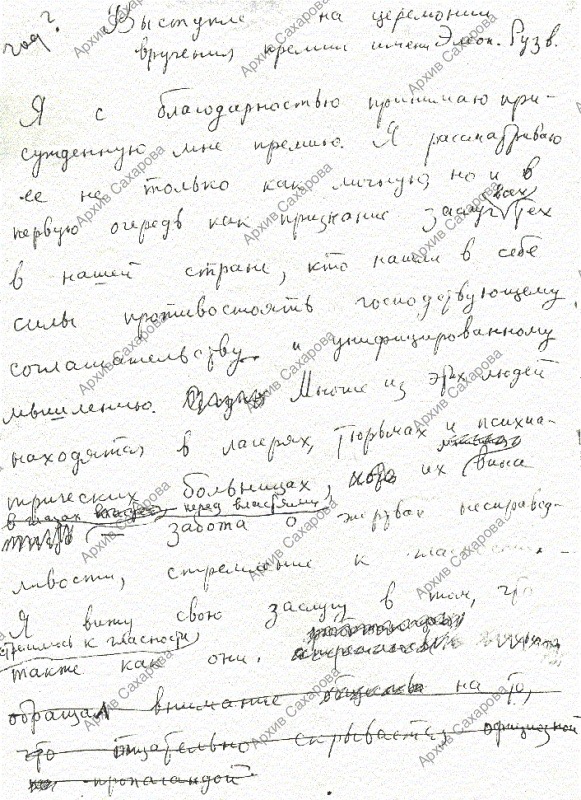 год? Выступле на церемонии
вручения премии имени Элеон. Рузв.
Я с благодарностью принимаю при-
сужденную мне премию. Я рассматриваю
ее не только как личную, но и в
первую очередь как признание заслуг всех тех
в нашей стране, кто нашел в себе
силы противостоять господствующему
соглашательству и унифицированному
мышлению. Многие из этих людей
находятся в лагерях, тюрьмах и психиа-
трических больницах, их вина
в глазах перед властями
забота о жертвах несправед-
ливости, стремление к гласности.
Я вижу свою заслугу в том, что
стремлюсь к гласности,
также как они.
обращал внимание на то,
что тщательно скрывается официозной
пропагандой
Архив Сахарова